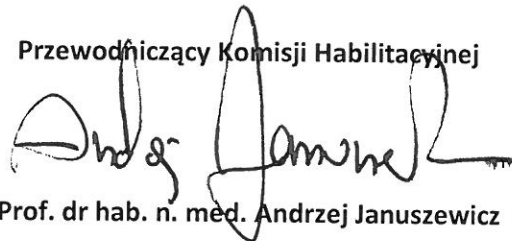 Przewodniczący Komisji Habilitacyjnej
Andrzej Januszewicz
Prof. dr hab. n. med. Andrzej Januszewicz